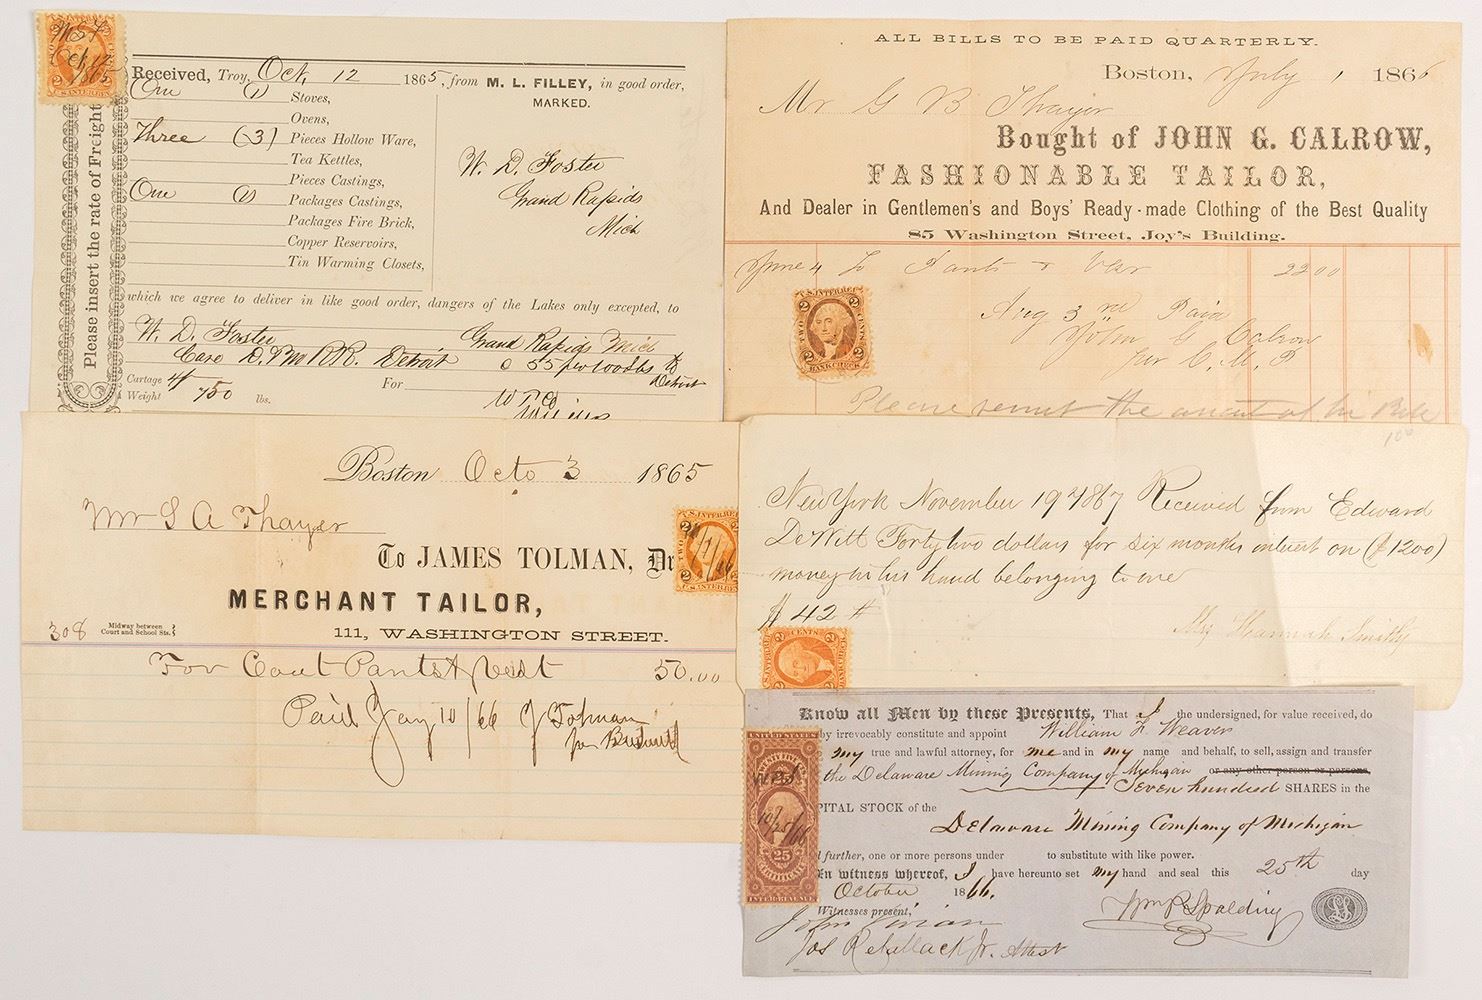 W S F
Oct 12
1865
Please insert the rate of Freight
Received, Troy, Oct, 12 1865, from M. L. FILLEY, in good order,
MARKED.
One (1) Stoves,
Ovens,
Three (3) Pieces Hollow Ware,
Tea Kettles,
Pieces Castings,
One (1) Packages Castings,
Packages Fire Brick,
Copper Reservoirs,
Tin Warming Closets,
W. D. Foster
Grand Rapids
Mich
which we agree to deliver in like good order, dangers of the Lakes only excepted, to
W. D. Foster Grand Rapids Mich
Care D. & M RR. Detroit 55 per 100 lbs to
Detroit
Cartage
Weight 750 lbs.
For
ALL BILLS TO BE PAID QUARTERLY.
Boston, July 1 1866
Mr G B Thayer
Bought of JOHN G. CALROW,
FASHIONABLE TAILOR,
And Dealer in Gentlemen's and Boys' Ready-made Clothing of the Best Quality
85 Washington Street, Joy's Building.
June 4 To Pants & Ves 22 00
U.S. INTER. REV.
2 2
TWO CENTS
BANK CHECK
Aug 3rd Paid
John G Calrow
per C. M. P
Please remit the amount of the Bill
Boston Octo 3 1865
Mr S A Thayer
To JAMES TOLMAN, Dr
MERCHANT TAILOR,
308 Midway between
Court and School Sts.
111, WASHINGTON STREET.
For Coat Pants & Vest 50.00
Paid Jay 10/66 J Tolman
100
New York November 19 1867 Received from Edward
DeWitt Forty two dollars for six months interest on ($1200)
money in his hand belonging to me
$42
Mrs Hannah Smith
Know all Men by these Presents, That I the undersigned, for value received, do
by irrevocably constitute and appoint William F. Weaver
my true and lawful attorney, for me and in my name and behalf, to sell, assign and transfer
the Delaware Mining Company of Michigan or any other person or persons,
Seven hundred SHARES in the
PITAL STOCK of the
Delaware Mining Company of Michigan
further, one or more persons under to substitute with like power.
In witness whereof, I have hereunto set my hand and seal this 25th day
October 1866.
Witnesses present,
John Vivian
Jos Retallack Jr. Attest
Wm P Spalding
LS
UNITED STATES
25
CERTIFICATE
INTER. REVENUE
10/25/66